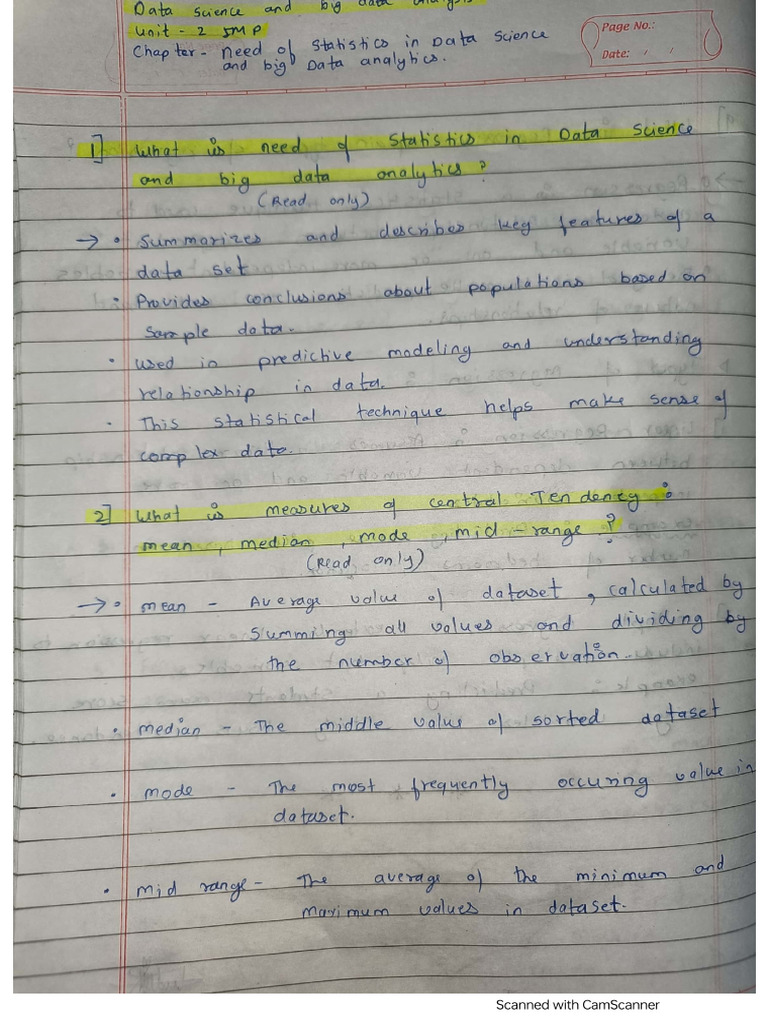 Data Science and big data analysis
Unit - 2 IMP
Chapter - Need of Statistics in Data Science
and big Data analytics.
Page No.:
Date: / /
1] What is need of Statistics in Data Science
and big data analytics?
(Read only)
→ • Summarizes and describes key features of a
data set
• Provides conclusions about populations based on
Sample data.
• used in predictive modeling and understanding
relationship in data.
• This statistical technique helps make sense of
complex data.
2] What is measures of central Tendency :
mean, median, mode, mid-range?
(Read only)
→ • mean - Average value of dataset, calculated by
Summing all values and dividing by
the number of observation.
• median - The middle value of sorted dataset
• mode - The most frequently occuring value in
dataset.
• mid range - The average of the minimum and
maximum values in dataset.
Scanned with CamScanner